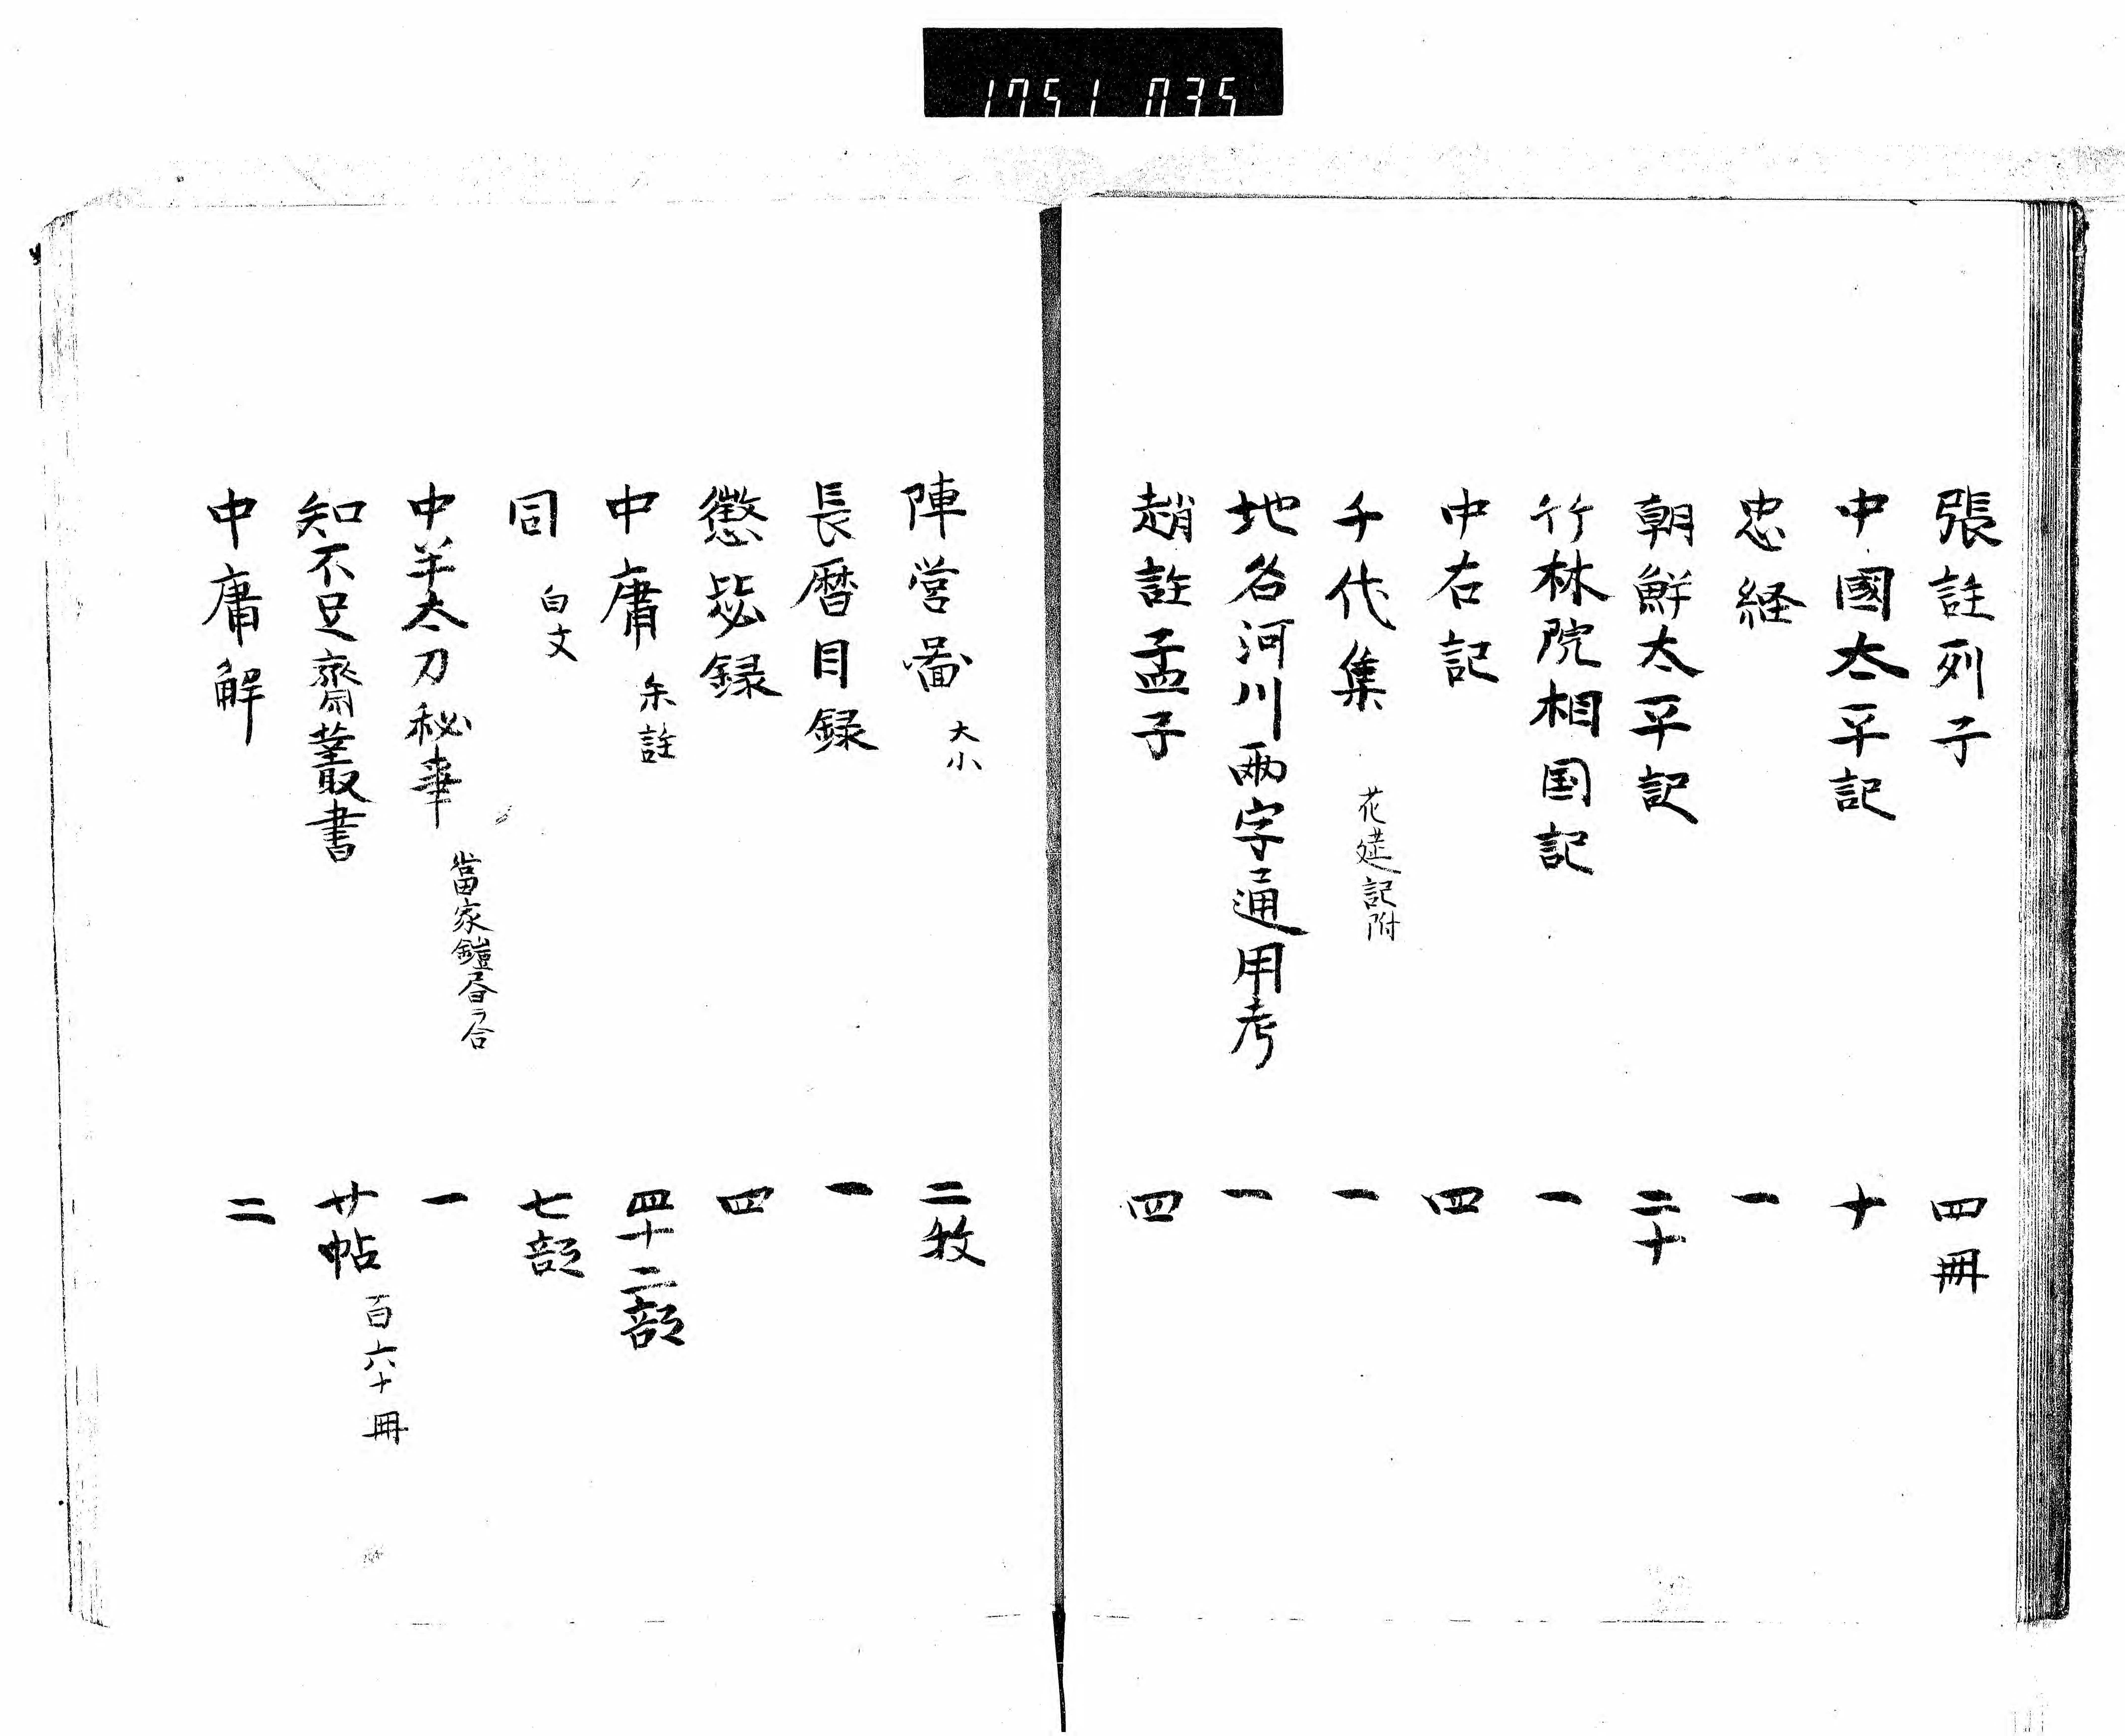 1751 035
張註列子 四冊
中國太平記 十
忠経 一
朝鮮太平記 二十
竹林院相国記 一
中右記 四
千代集 花筵記附 一
地名河川両字通用考 一
趙註孟子 四
陣営圖 大小 二枚
長暦目録 一
懲毖録 四
中庸 朱註 四十二部
同 白文 七部
中羊太刀秘事 當家鎧 合 一
知不足齋叢書 廿帖 百六十冊
中庸解 二